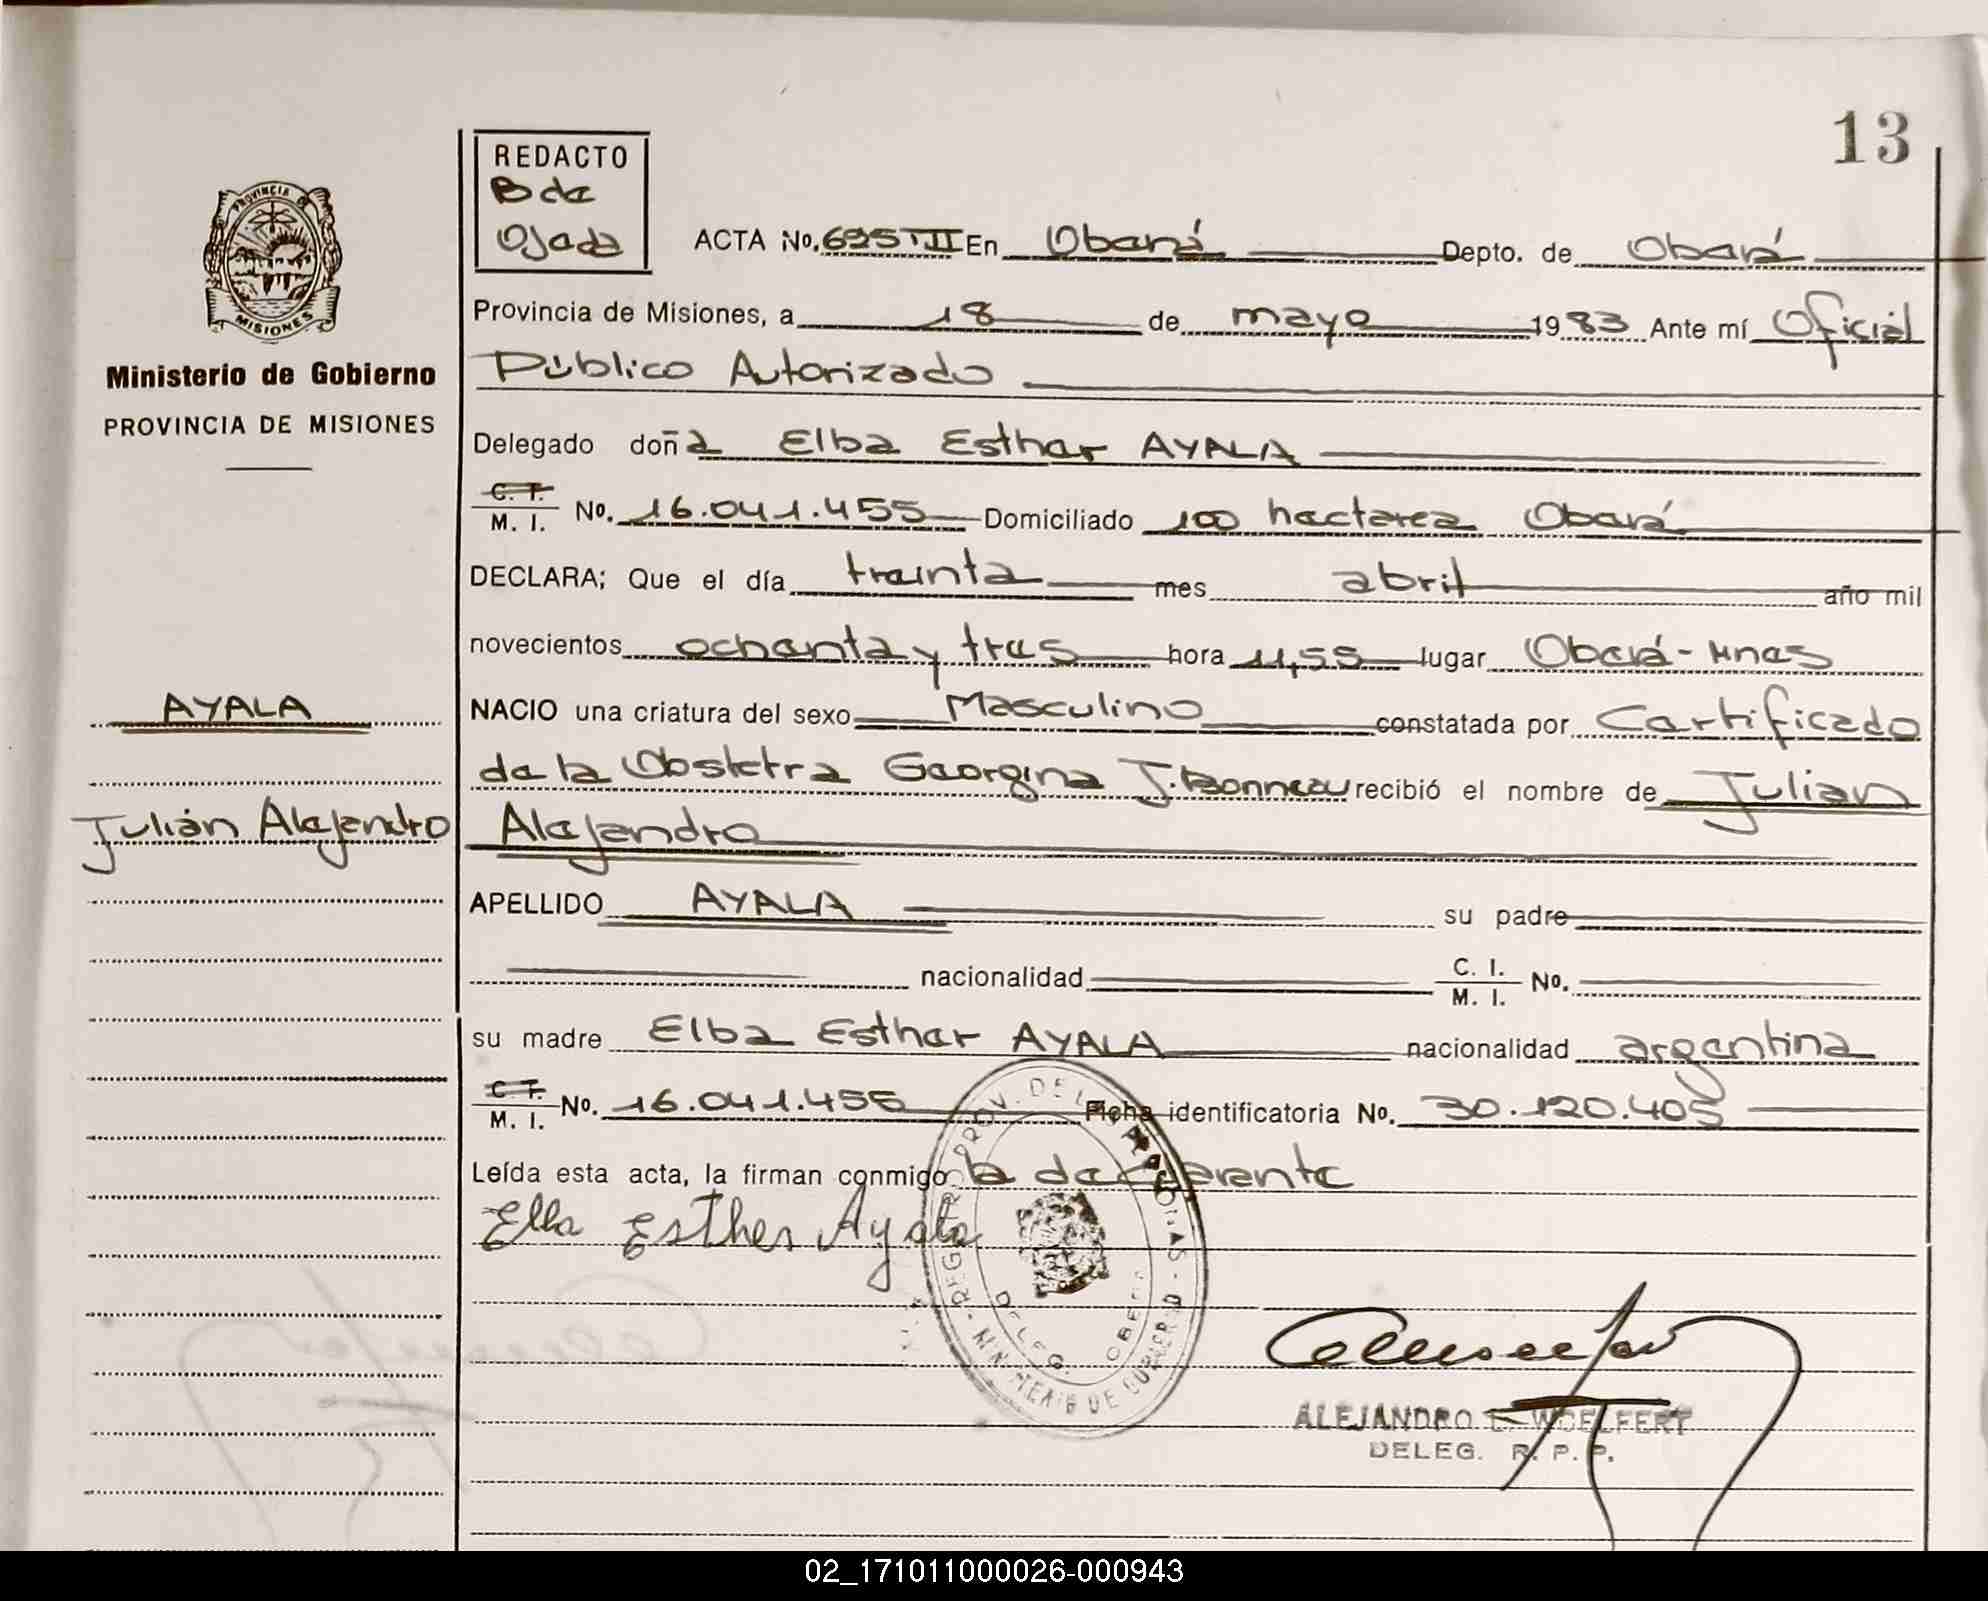 13
REDACTO
B de
Ojeda
PROVINCIA DE
MISIONES
Ministerio de Gobierno
PROVINCIA DE MISIONES
ACTA No. 695 T II En Oberá Depto. de Oberá
Provincia de Misiones, a 18 de mayo 1983 Ante mí Oficial
Público Autorizado
Delegado doña Elba Esther AYALA
C. I. / M. I. No. 16.041.455 Domiciliado 100 hectarea Oberá
DECLARA; Que el día treinta mes abril año mil
novecientos ochenta y tres hora 11,55 lugar Oberá - Mnes
AYALA
NACIO una criatura del sexo Masculino constatada por Certificado
de la Obstetra Georgina J. Bonneau recibió el nombre de Julian
Julián Alejandro
Alejandro
APELLIDO AYALA su padre
nacionalidad C. I. / M. I. No.
su madre Elba Esther AYALA nacionalidad argentina
C. I. / M. I. No. 16.041.455 Ficha identificatoria No. 30.120.405
Leída esta acta, la firman conmigo la declarante
Elba Esther Ayala
REGISTRO PROV. DE LAS PERSONAS - MINISTERIO DE GOBIERNO
DELEG. OBERA
ALEJANDRO E. WOELFERT
DELEG. R. P. P.
02_171011000026-000943